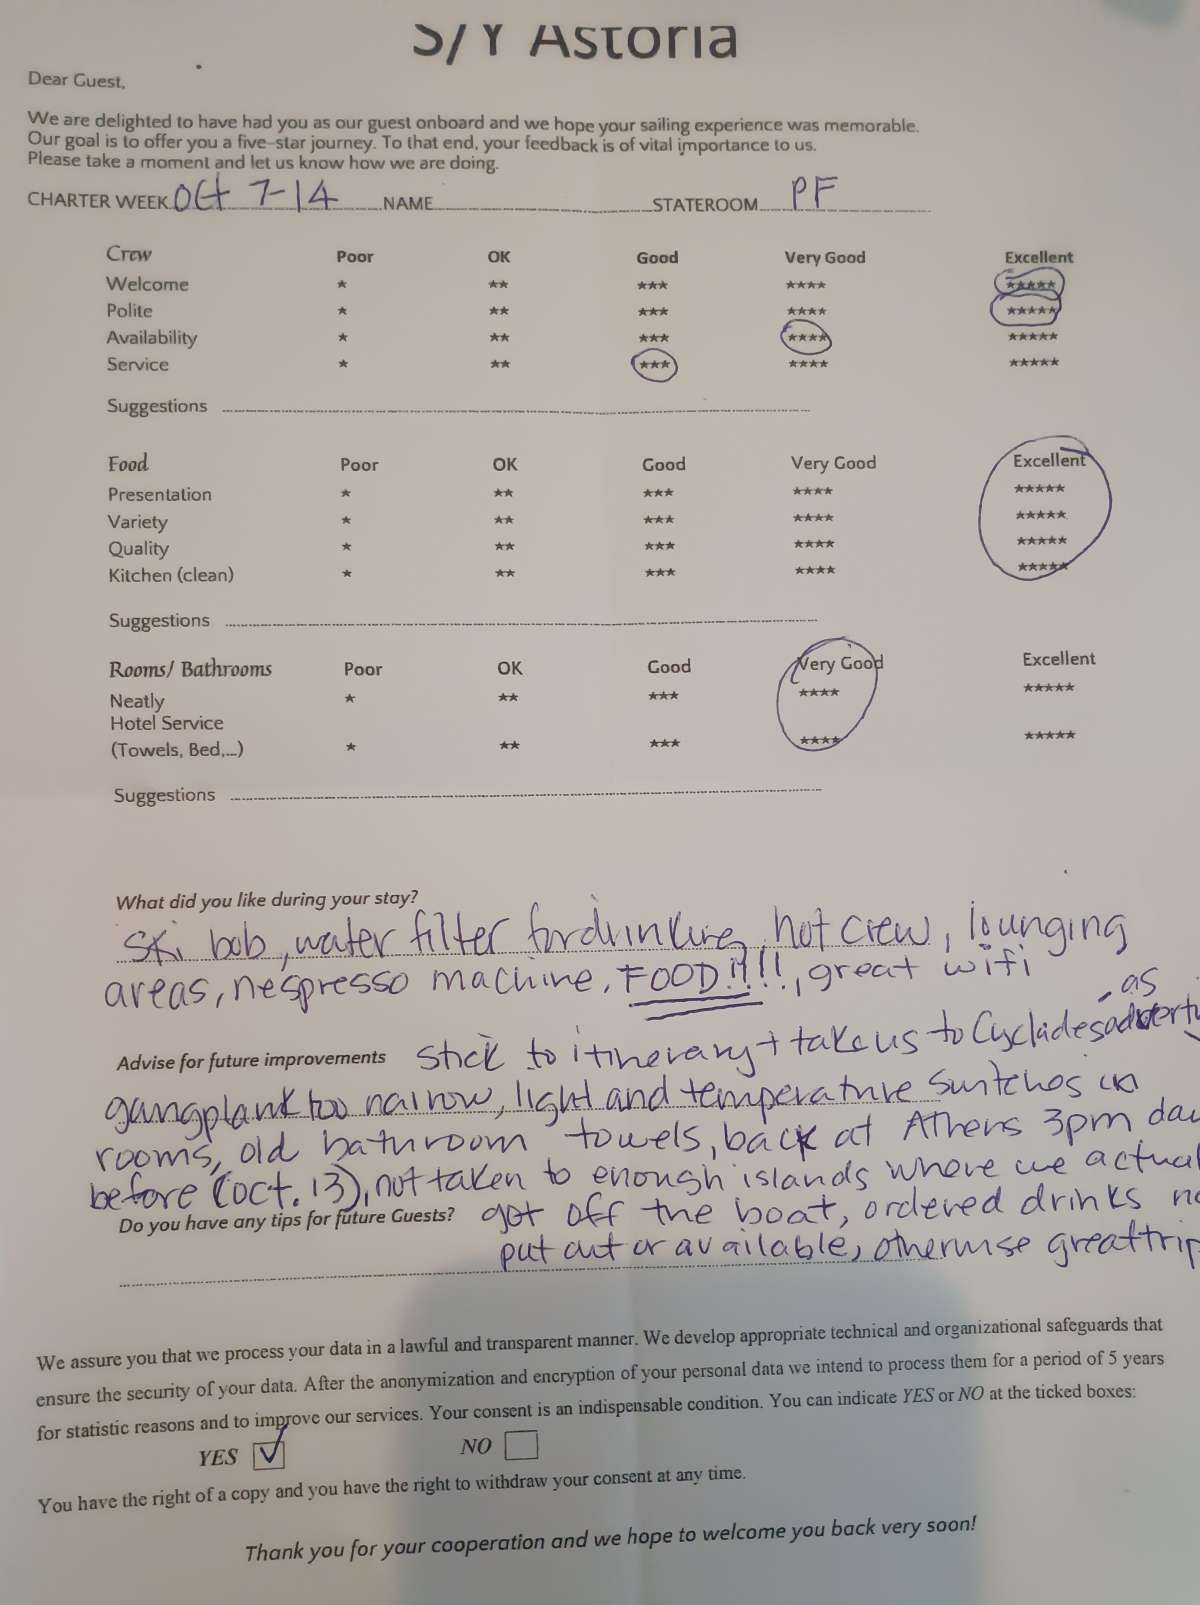 S/Y Astoria
Dear Guest,
We are delighted to have had you as our guest onboard and we hope your sailing experience was memorable.
Our goal is to offer you a five-star journey. To that end, your feedback is of vital importance to us.
Please take a moment and let us know how we are doing.
CHARTER WEEK Oct 7-14 NAME STATEROOM PF
Crew Poor OK Good Very Good Excellent
Welcome * ** *** **** *****
Polite * ** *** **** *****
Availability * ** *** **** *****
Service * ** *** **** *****
Suggestions
Food Poor OK Good Very Good Excellent
Presentation * ** *** **** *****
Variety * ** *** **** *****
Quality * ** *** **** *****
Kitchen (clean) * ** *** **** *****
Suggestions
Rooms/ Bathrooms Poor OK Good Very Good Excellent
Neatly * ** *** **** *****
Hotel Service
(Towels, Bed,...) * ** *** **** *****
Suggestions
What did you like during your stay?
Ski bob, water filter for drinking, hot crew, lounging
areas, nespresso machine, FOOD!!!!, great wifi
as
Advise for future improvements stick to itinerary + take us to Cyclades
gangplank too narrow, light and temperature switches in
rooms, old bathroom towels, back at Athens 3pm day
before (Oct. 13), not taken to enough islands where we
Do you have any tips for future Guests? got off the boat, ordered drinks
put out or available, otherwise great trip
We assure you that we process your data in a lawful and transparent manner. We develop appropriate technical and organizational safeguards that
ensure the security of your data. After the anonymization and encryption of your personal data we intend to process them for a period of 5 years
for statistic reasons and to improve our services. Your consent is an indispensable condition. You can indicate YES or NO at the ticked boxes:
YES NO
You have the right of a copy and you have the right to withdraw your consent at any time.
Thank you for your cooperation and we hope to welcome you back very soon!